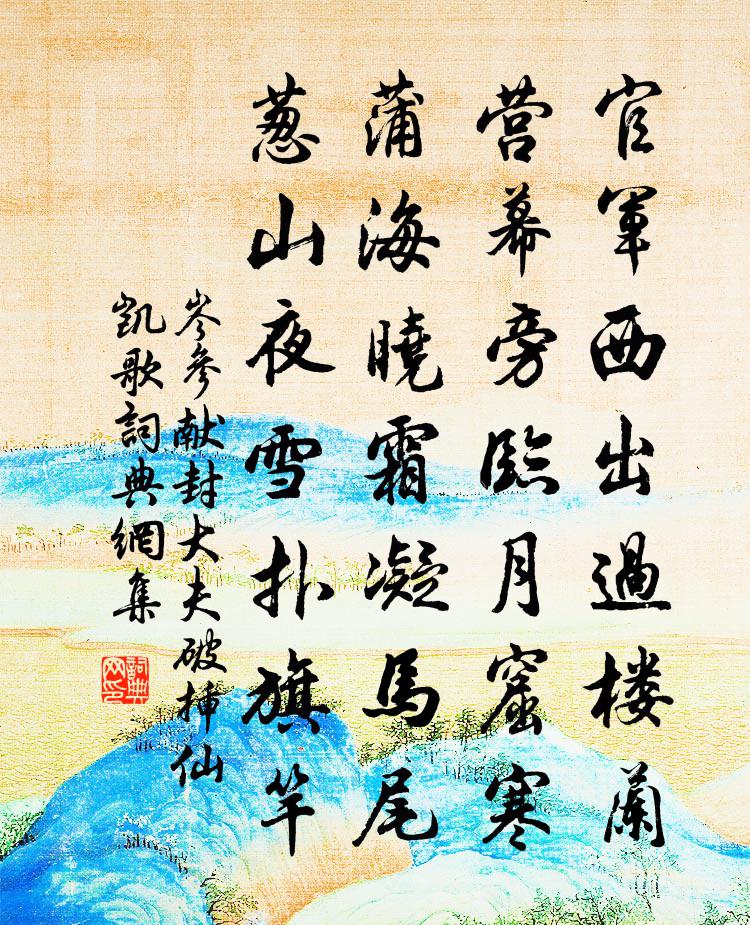 官軍西出過楼蘭
营幕旁臨月窟寒
蒲海曉霜凝馬尾
葱山夜雪扑旗竿
岑參献封大夫破播仙
凱歌詞典網集
詞典
网印